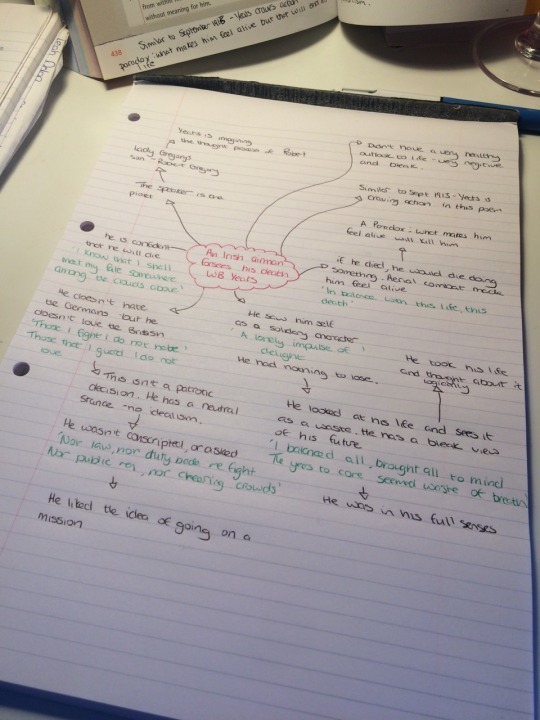 from within
without meaning for him.
438
Similar to September 1913 - Yeats craves action
paradox: what makes him feel alive but this will end his
life
Yeats is imagining
the thought process of Robert
Lady Gregorys
son - Robert Gregory
The speaker is the
pilot
Didn't have a very healthy
outlook to life - very negative
and bleak.
Similar to Sept 1913 - Yeats is
craving action in this poem
A Paradox: what makes him
feel alive will kill him
if he died, he would die doing
something. Aerial combat made
him feel alive
'In balance with this life, this
death'
An Irish airman
forsees his death
WB Yeats
he is confident
that he will die
'I know that I shall
meet my fate somewhere
among the clouds above'
He doesn't hate
the Germans but he
doesn't love the British
'Those I fight I do not hate'
Those that I guard I do not
love
This isn't a patriotic
decision. He has a neutral
stance - no idealism.
He wasn't conscripted, or asked
'Nor law, nor duty bade me fight
Nor public men, nor cheering crowds'
He liked the idea of going on a
mission
He saw himself
as a solitary character
'A lonely impulse of
delight'
He had nothing to lose.
He looked at his life and sees it
as a waste. He has a bleak view
of his future
'I balanced all, brought all to mind
The years to come seemed waste of breath'
He was in his full senses
He took his life
and thought about it
logically